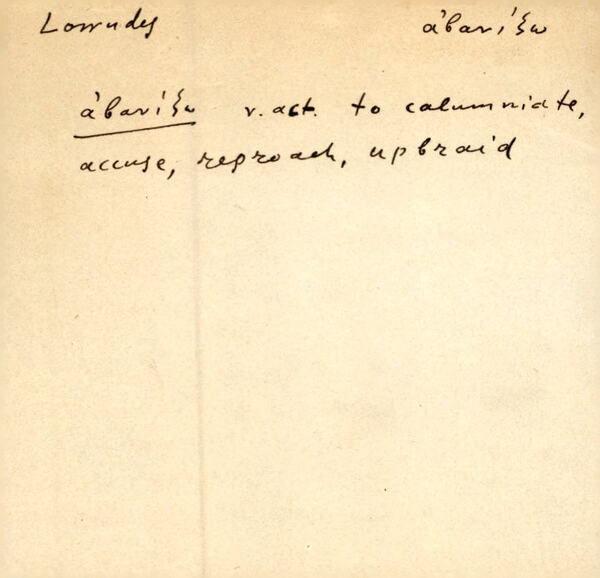 Lowndes ἀβανίζω
ἀβανίζω v. act. to calumniate,
accuse, reproach, upbraid